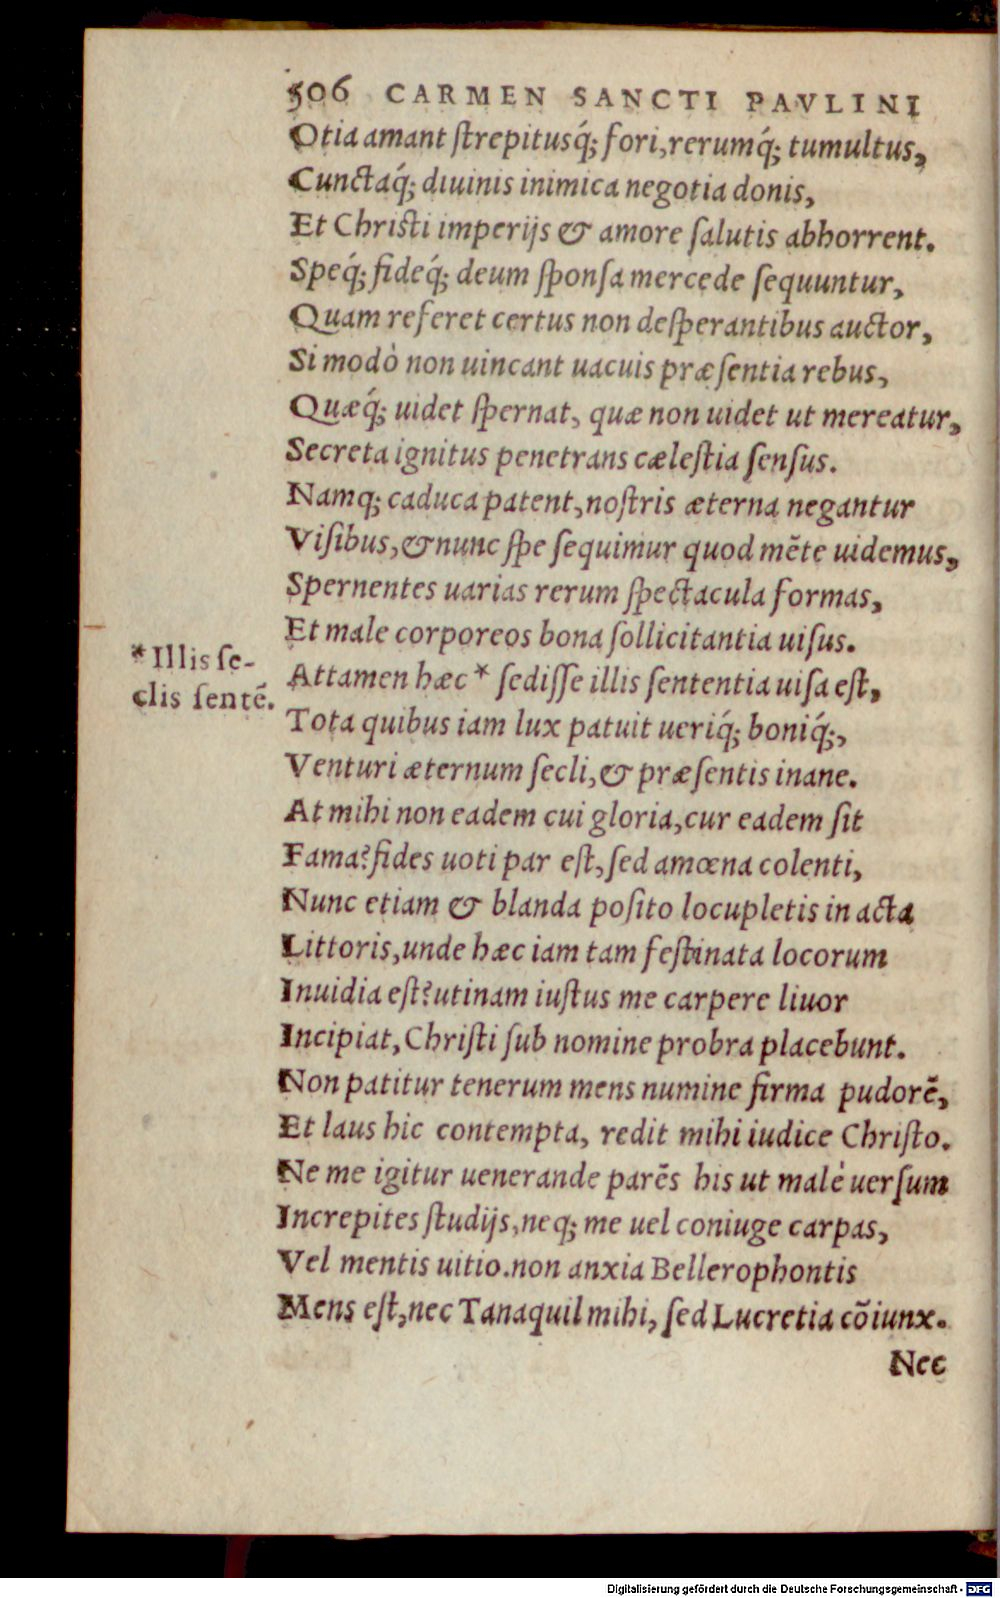 506 CARMEN SANCTI PAVLINI
Otia amant ſtrepitusq́; fori, rerumq́; tumultus,
Cunctaq́; diuinis inimica negotia donis,
Et Chriſti imperijs & amore ſalutis abhorrent.
Speq́; fideq́; deum ſponſa mercede ſequuntur,
Quam referet certus non deſperantibus auctor,
Si modò non uincant uacuis præſentia rebus,
Quæq́; uidet ſpernat, quæ non uidet ut mereatur,
Secreta ignitus penetrans cæleſtia ſenſus.
Namq; caduca patent, noſtris æterna negantur
Viſibus, & nunc ſpe ſequimur quod mēte uidemus,
Spernentes uarias rerum ſpectacula formas,
Et male corporeos bona ſollicitantia uiſus.
*Illis ſe-
clis ſentē.
Attamen hæc * ſediſſe illis ſententia uiſa eſt,
Tota quibus iam lux patuit ueriq́; boniq́;,
Venturi æternum ſecli, & præſentis inane.
At mihi non eadem cui gloria, cur eadem ſit
Fama? fides uoti par eſt, ſed amœna colenti,
Nunc etiam & blanda poſito locupletis in acta
Littoris, unde hæc iam tam feſtinata locorum
Inuidia eſt? utinam iuſtus me carpere liuor
Incipiat, Chriſti ſub nomine probra placebunt.
Non patitur tenerum mens numine firma pudorē,
Et laus hic contempta, redit mihi iudice Chriſto.
Ne me igitur uenerande parēs his ut malè uerſum
Increpites ſtudijs, neq; me uel coniuge carpas,
Vel mentis uitio. non anxia Bellerophontis
Mens eſt, nec Tanaquil mihi, ſed Lucretia cōiunx.
Nec
Digitalisierung gefördert durch die Deutsche Forschungsgemeinschaft - DFG